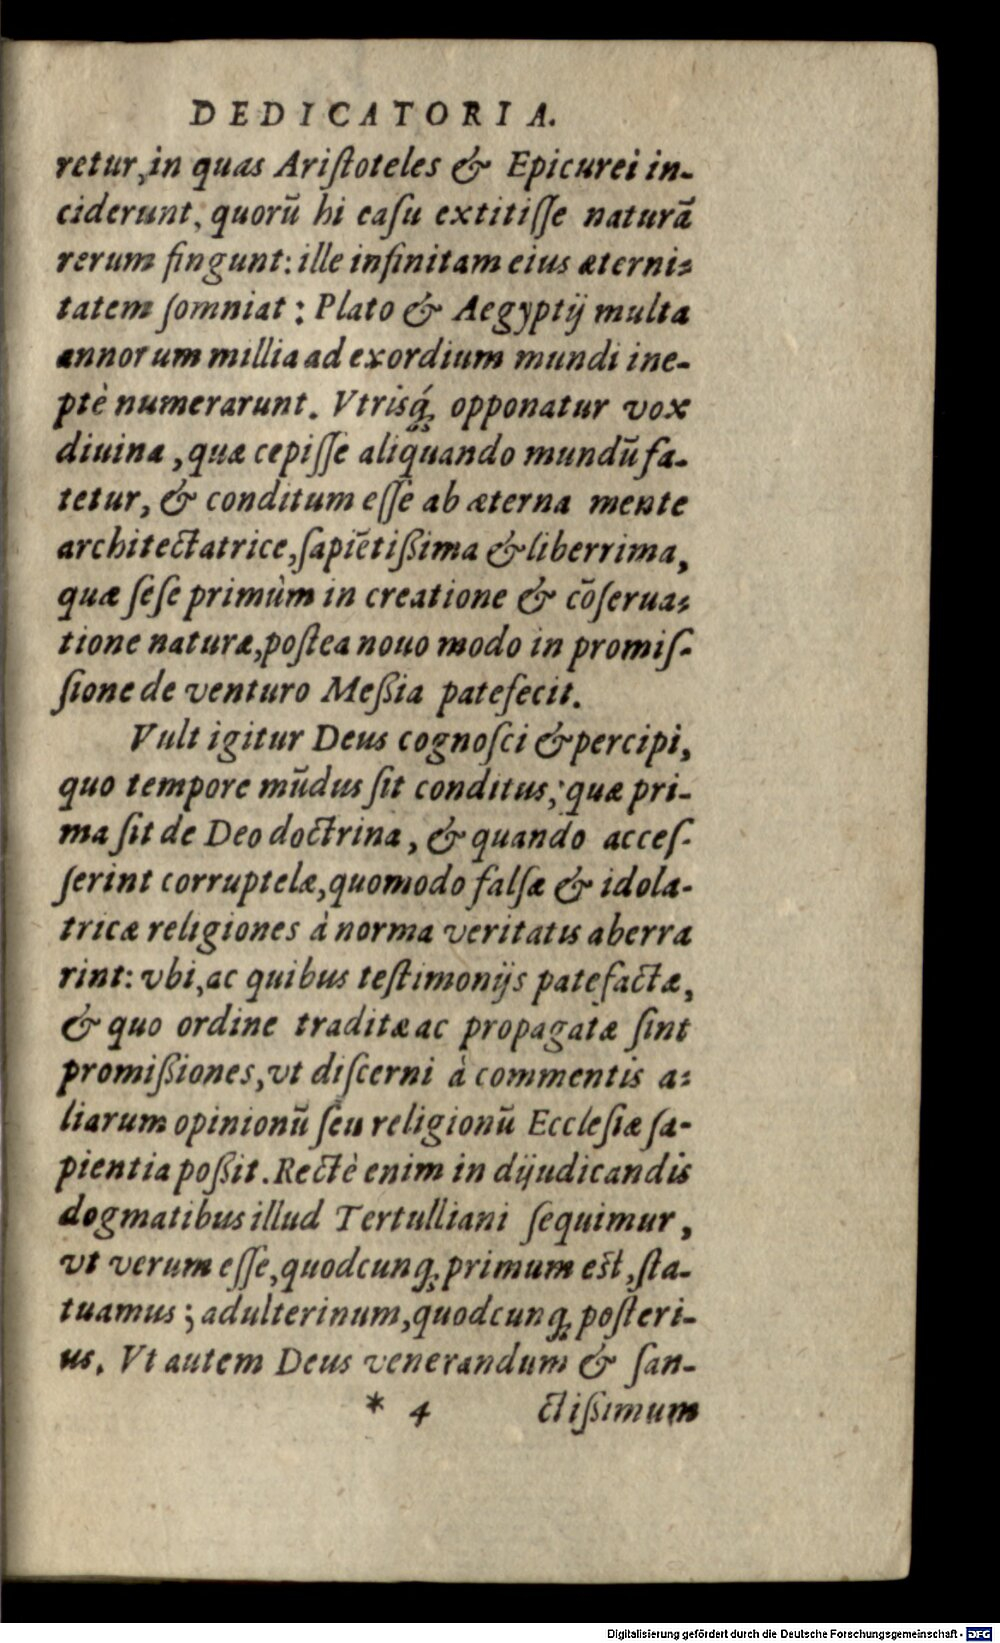 DEDICATORIA.
retur, in quas Ariſtoteles & Epicurei in-
ciderunt, quorū hi caſu extitiſſe naturā
rerum fingunt: ille infinitam eius æterni-
tatem ſomniat: Plato & Aegyptij multa
annorum millia ad exordium mundi ine-
ptè numerarunt. Vtrisq́; opponatur vox
diuina, quæ cepiſſe aliquando mundū fa-
tetur, & conditum eſſe ab æterna mente
architectatrice, ſapiētißima & liberrima,
quæ ſeſe primùm in creatione & cōſerua-
tione naturæ, poſtea nouo modo in promiſ-
ſione de venturo Meßia patefecit.
Vult igitur Deus cognoſci & percipi,
quo tempore mūdus ſit conditus, quæ pri-
ma ſit de Deo doctrina, & quando acceſ-
ſerint corruptelæ, quomodo falſæ & idola-
tricæ religiones à norma veritatis aberra
rint: vbi, ac quibus teſtimonijs patefactæ,
& quo ordine traditæ ac propagatæ ſint
promißiones, vt diſcerni à commentis a-
liarum opinionū ſeu religionū Eccleſiæ ſa-
pientia poßit. Rectè enim in dijudicandis
dogmatibus illud Tertulliani ſequimur,
vt verum eſſe, quodcunq; primum est, ſta-
tuamus; adulterinum, quodcunq; poſteri-
us. Vt autem Deus venerandum & ſan-
* 4 ctißimum
Digitalisierung gefördert durch die Deutsche Forschungsgemeinschaft - DFG